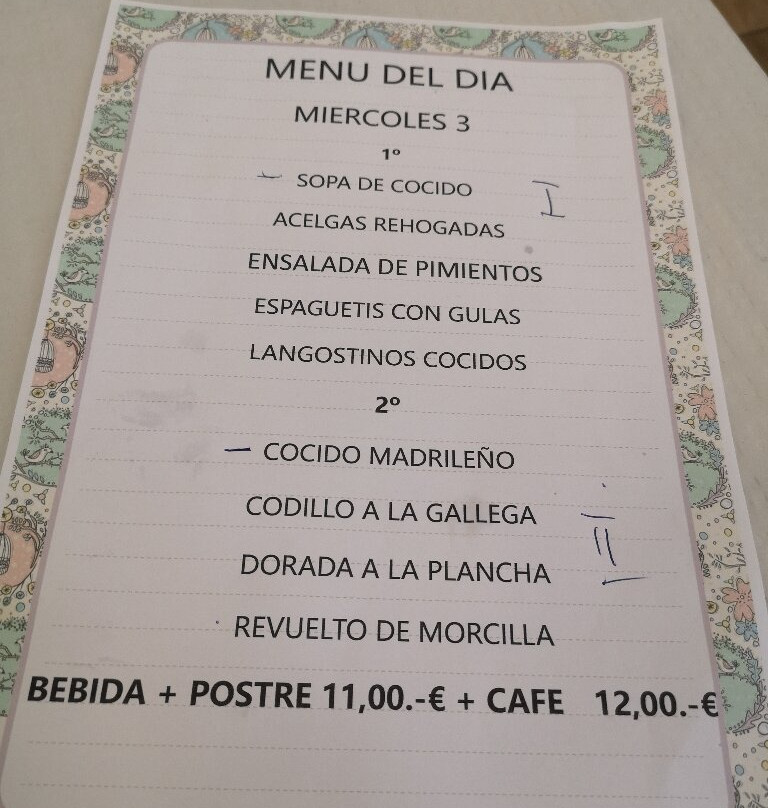 MENU DEL DIA
MIERCOLES 3
1º
- SOPA DE COCIDO I
ACELGAS REHOGADAS
ENSALADA DE PIMIENTOS
ESPAGUETIS CON GULAS
LANGOSTINOS COCIDOS
2º
- COCIDO MADRILEÑO
CODILLO A LA GALLEGA
II
DORADA A LA PLANCHA
REVUELTO DE MORCILLA
BEBIDA + POSTRE 11,00.-€ + CAFE 12,00.-€